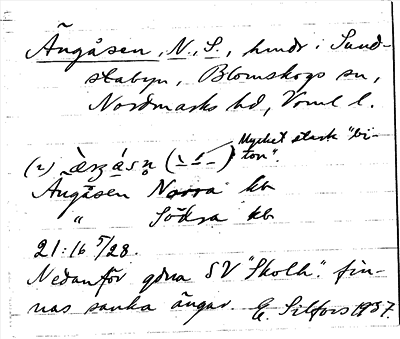 Ängåsen, N., S., hmdr i Sand-
stabyn, Blomskogs sn,
Nordmarks hd, Vrml l.
Mycket stark "bi-
ton".
(2)
Ängåsen Norra kb
" Södra kb
21:16 5/28.
Nedanför gdna SV "Skolh." fin-
nas sanka ängar. E. Silfors 1937.